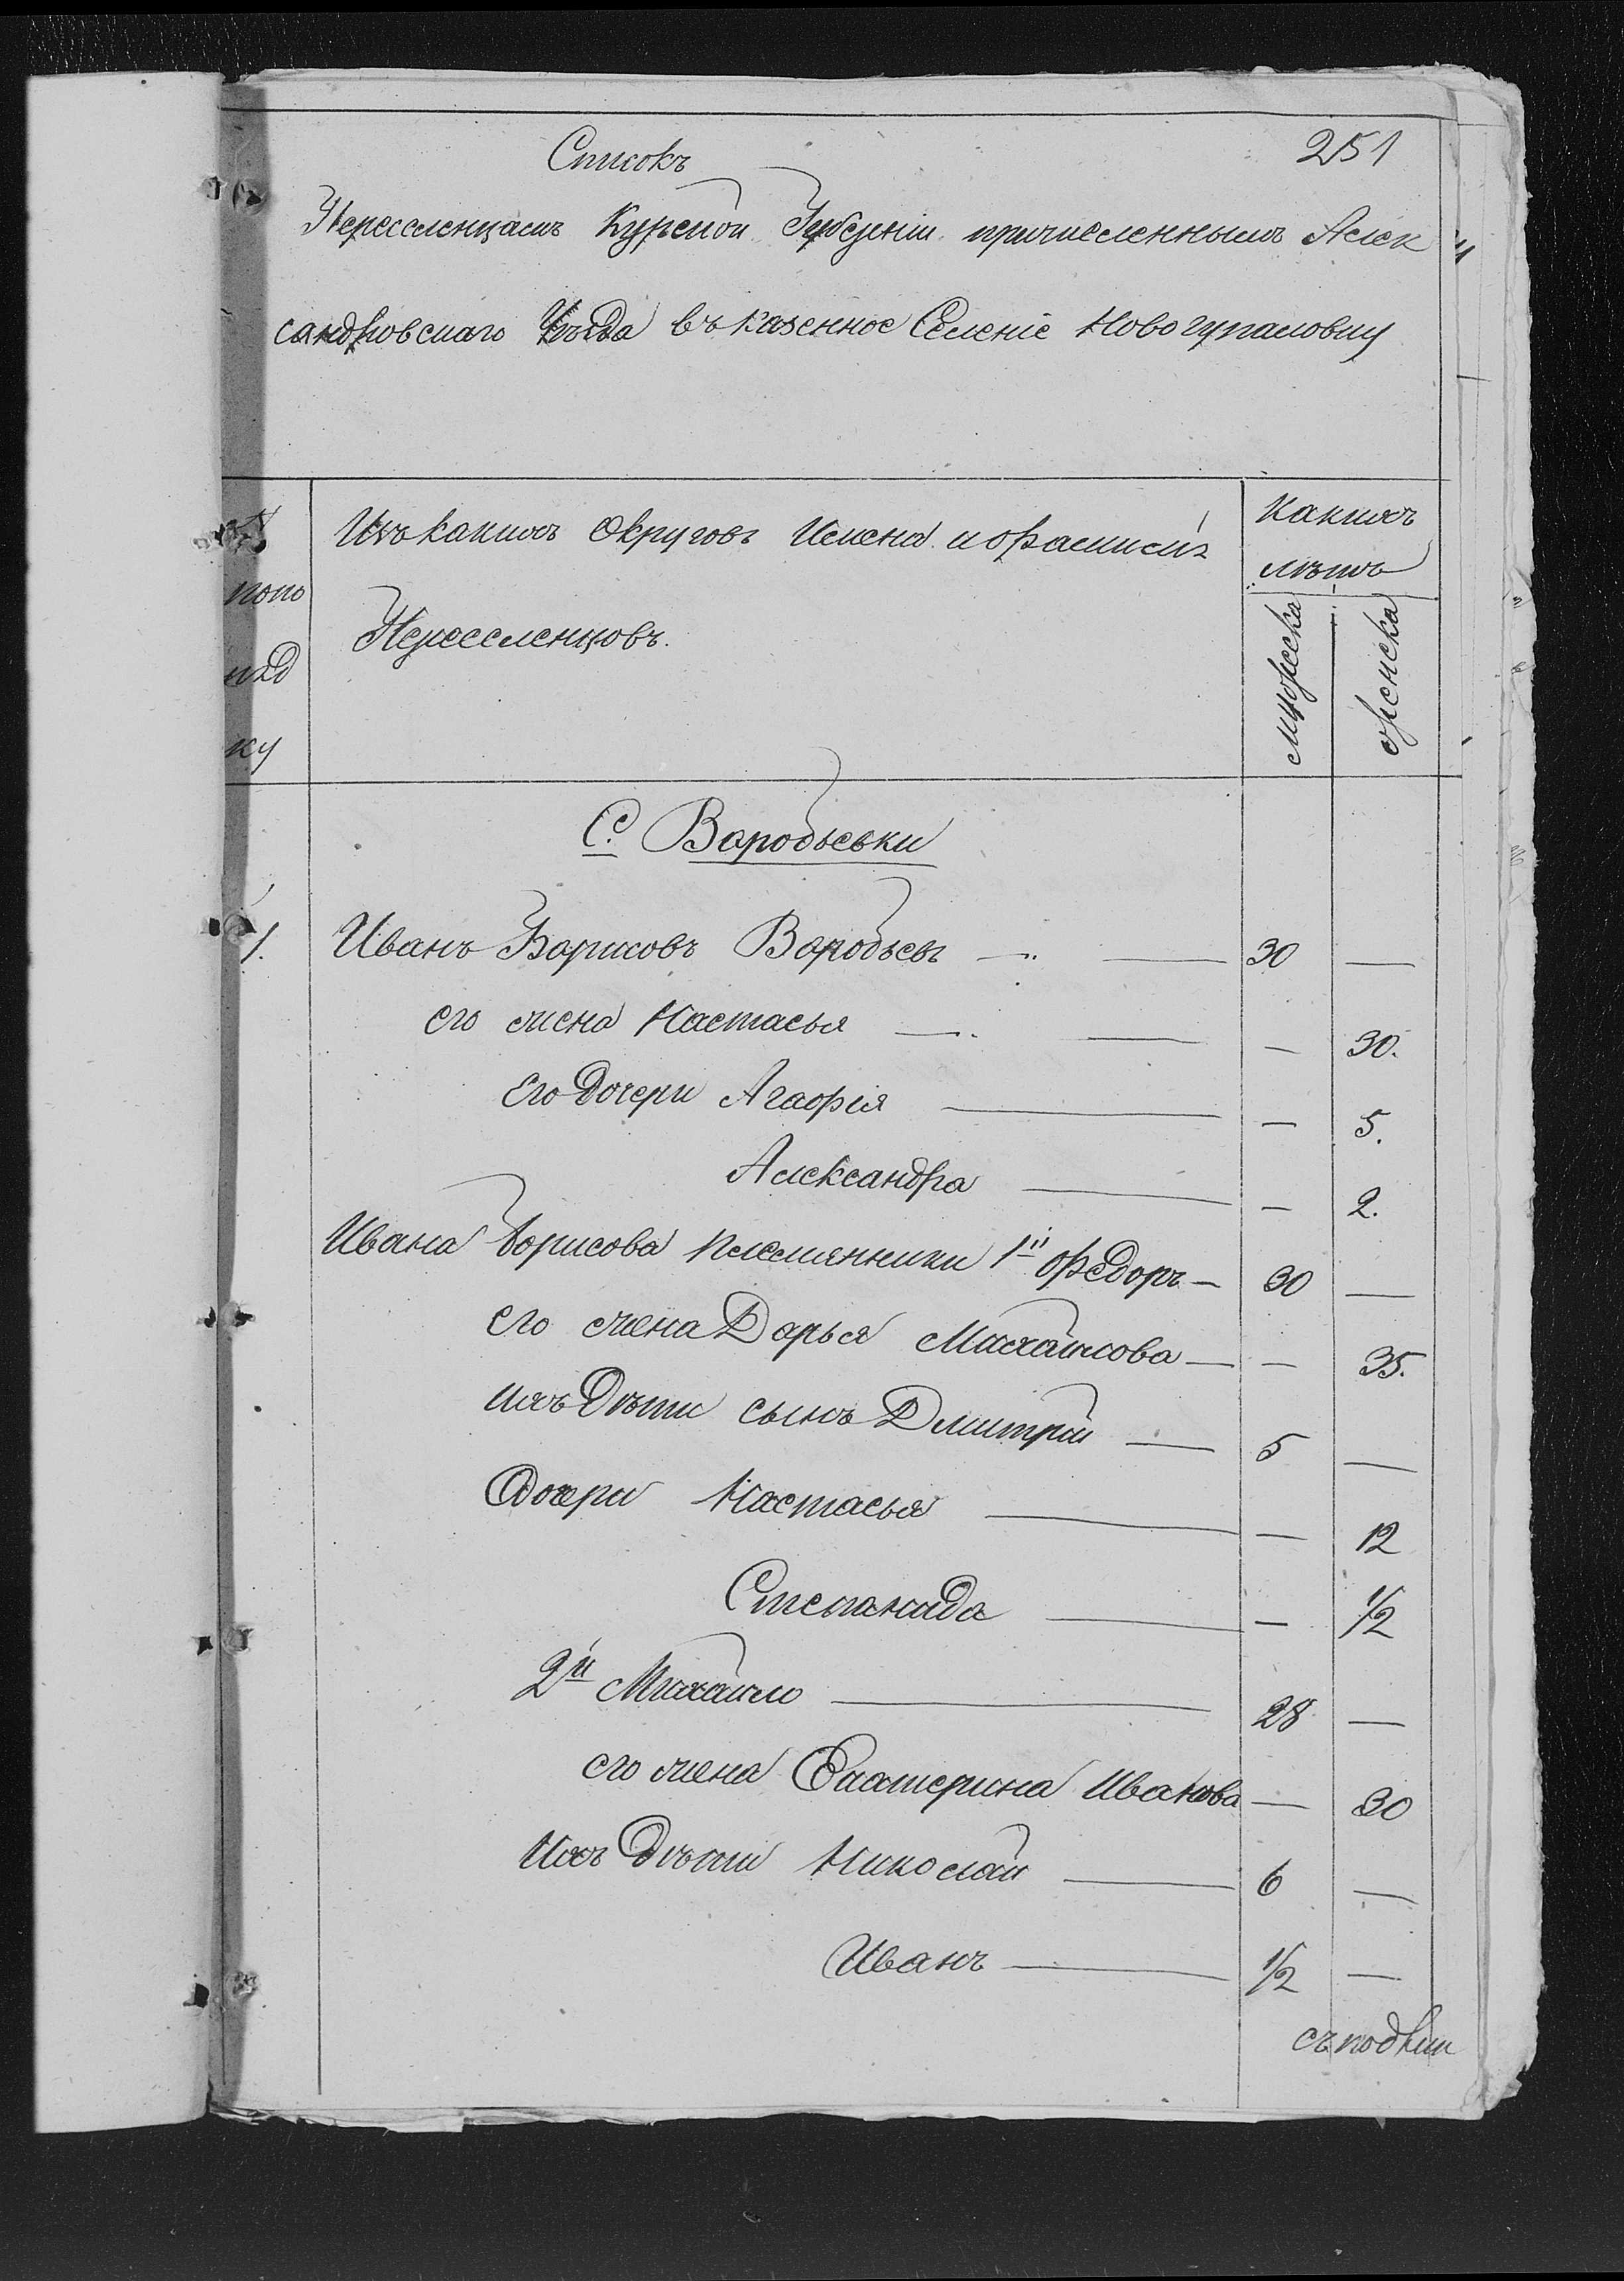 251
Списокъ
Переселенцамъ Курской Губерніи причисленнымъ Алек
сандровскаго Уѣзда въ казенное Селеніе Новогупаловку
№
попо
ряд
ку
Изъ какихъ округовъ Имена и фамиліи
Переселенцовъ.
Какихъ
лѣтъ
мужеска
женска
С. Воробьевки
1. Иванъ Борисовъ Воробьевъ — 30 —
его жена Настасья — — 30.
Его дочери Агафія — — 5.
Александра — — 2.
Ивана Борисова племянники 1й Федоръ — 30 —
его жена Дарья Михайлова — — 35.
ихъ дѣти сынъ Дмитрій — 5 —
Дочери Настасья — — 12
Степанида — — 1/2
2й Михайло — 28 —
его жена Екатерина Иванова — 30
Ихъ дѣти Николай — 6 —
Иванъ — 1/2 —